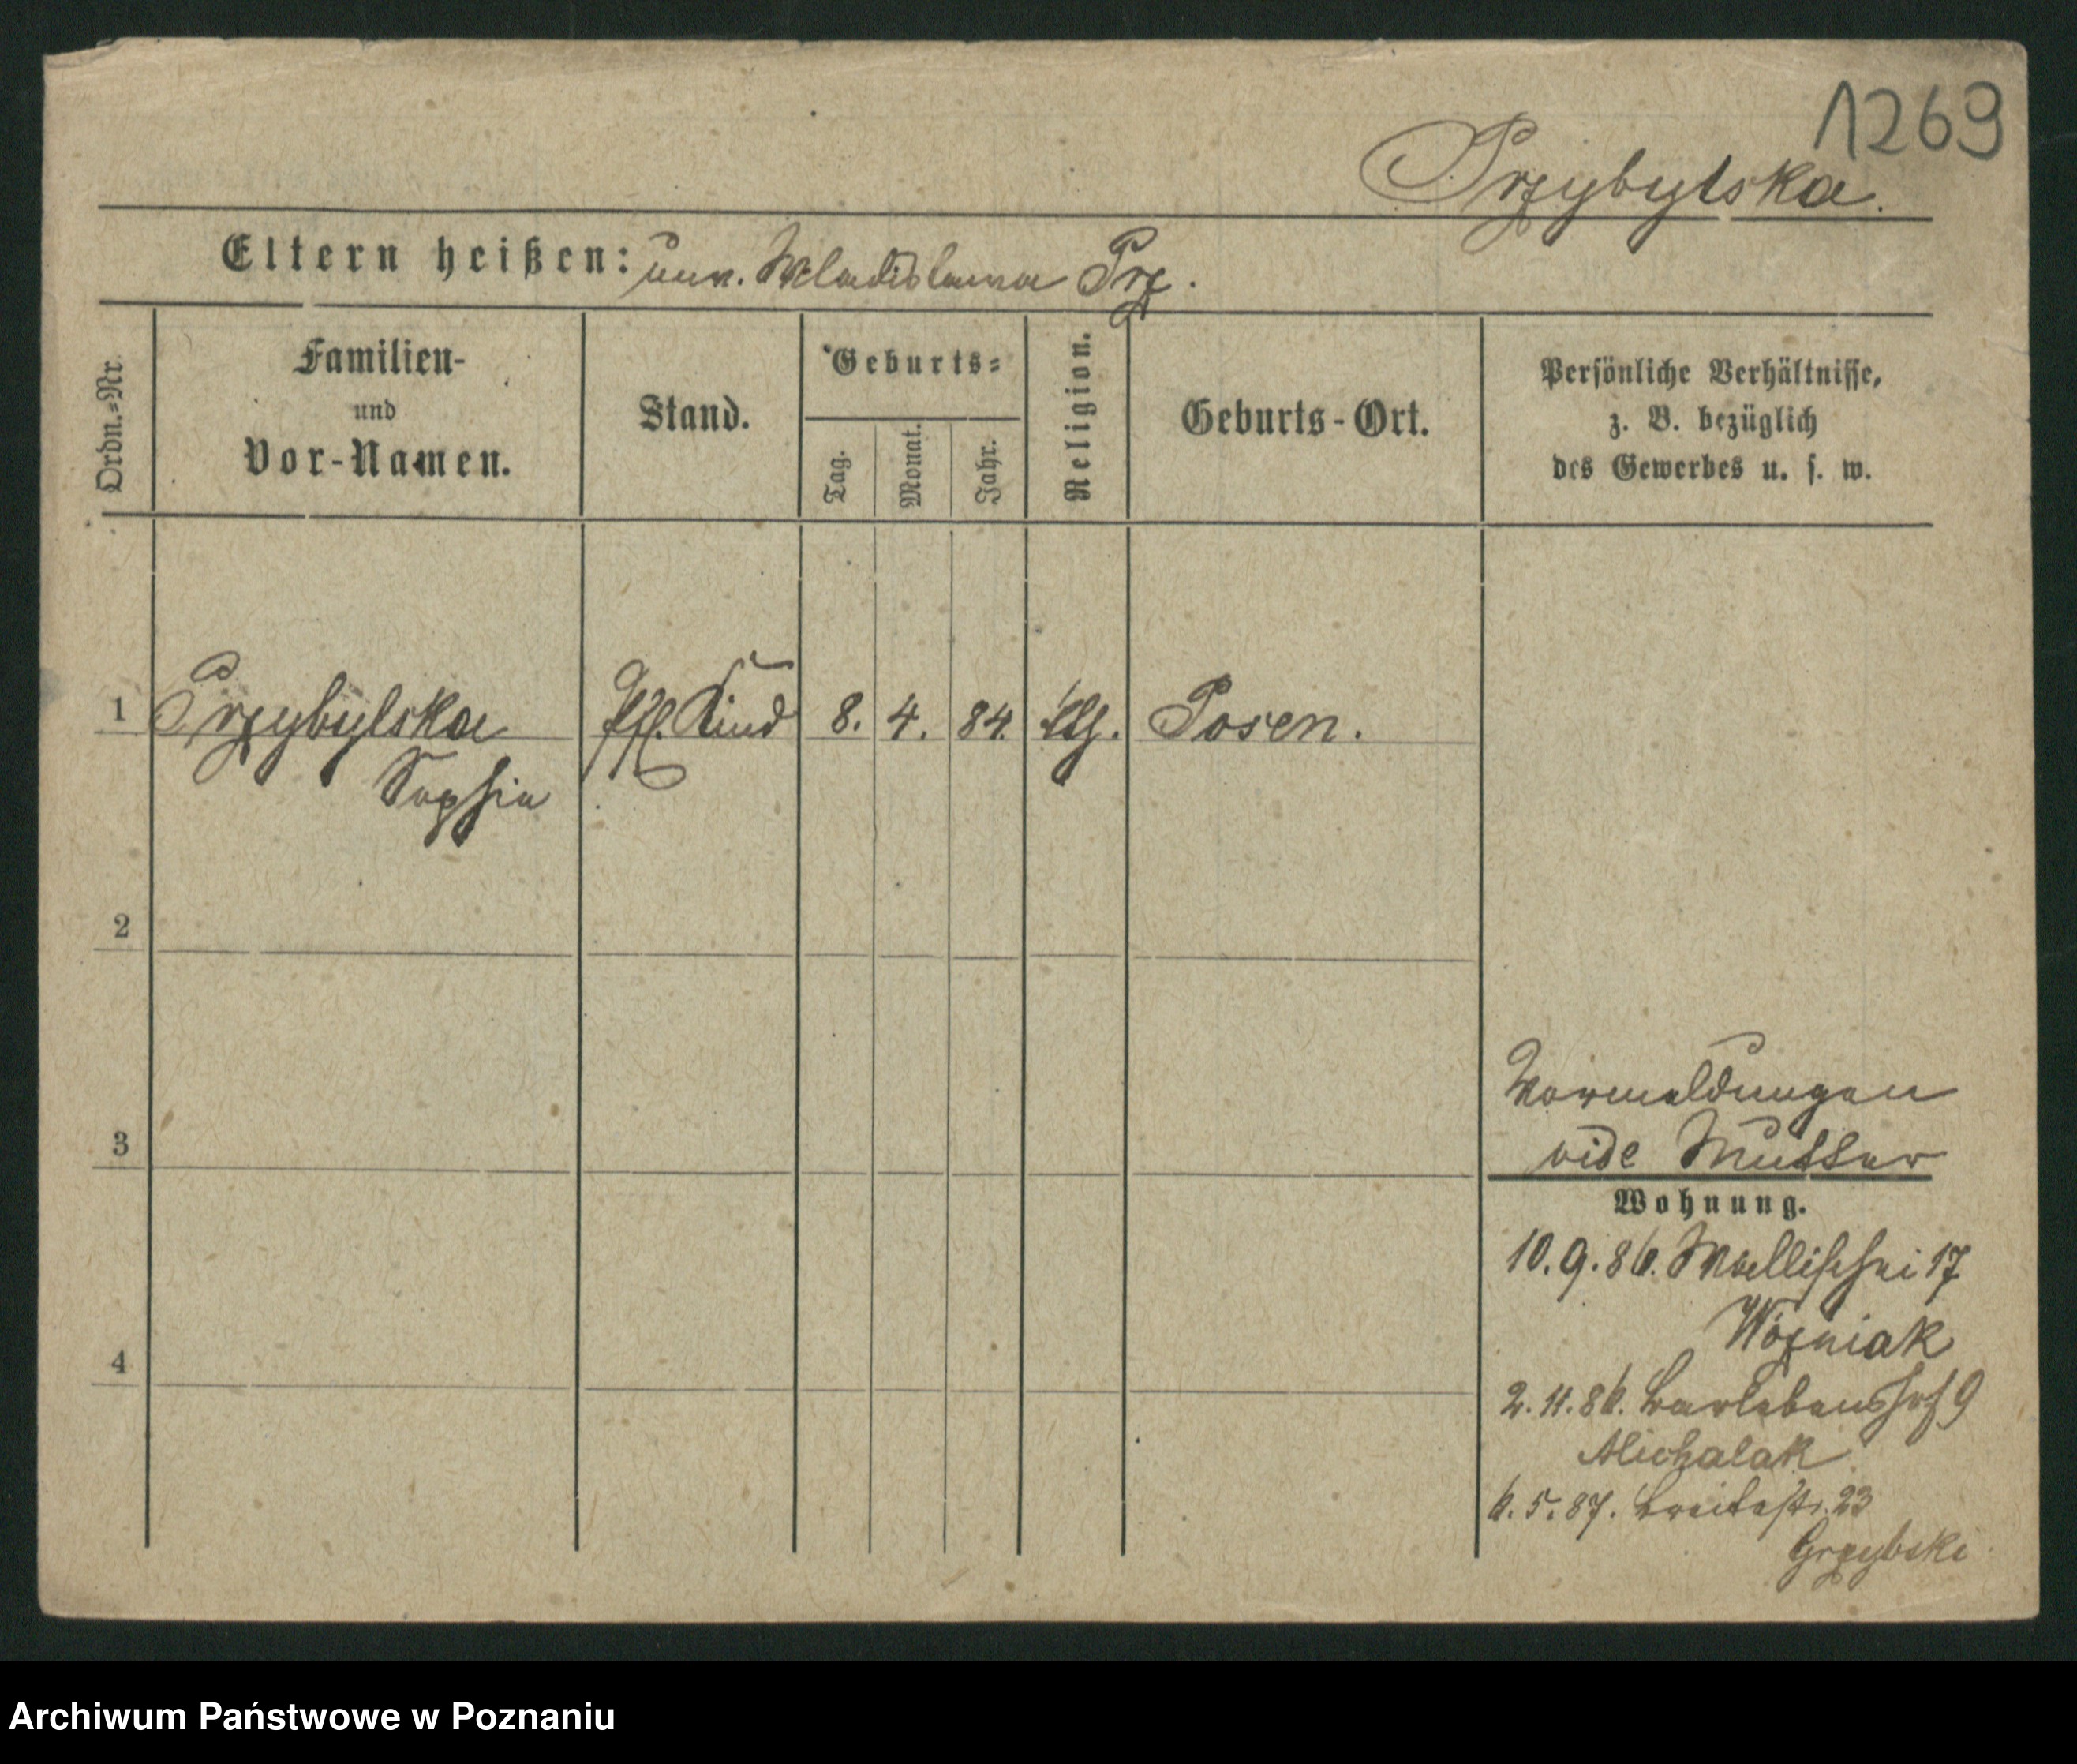 1269
Przybylska.
Eltern heißen: unv. Wladislawa Prz.
Ordn.=Nr.
Familien-
und
Vor-Namen.
Stand.
Geburts=
Tag.
Monat.
Jahr.
Religion.
Geburts-Ort.
Persönliche Verhältnisse,
z. B. bezüglich
des Gewerbes u. s. w.
1 Przybylska Pfl. Kind 8. 4. 84. Posen.
Sophia
2
3
4
Vormeldungen
vide Mutter
Wohnung.
10.9.86. Wallischei 17
Wozniak
2.11.86. Barlebenshof 9
Michalak
6.5.87. Breitestr. 23
Grzybski
Archiwum Państwowe w Poznaniu